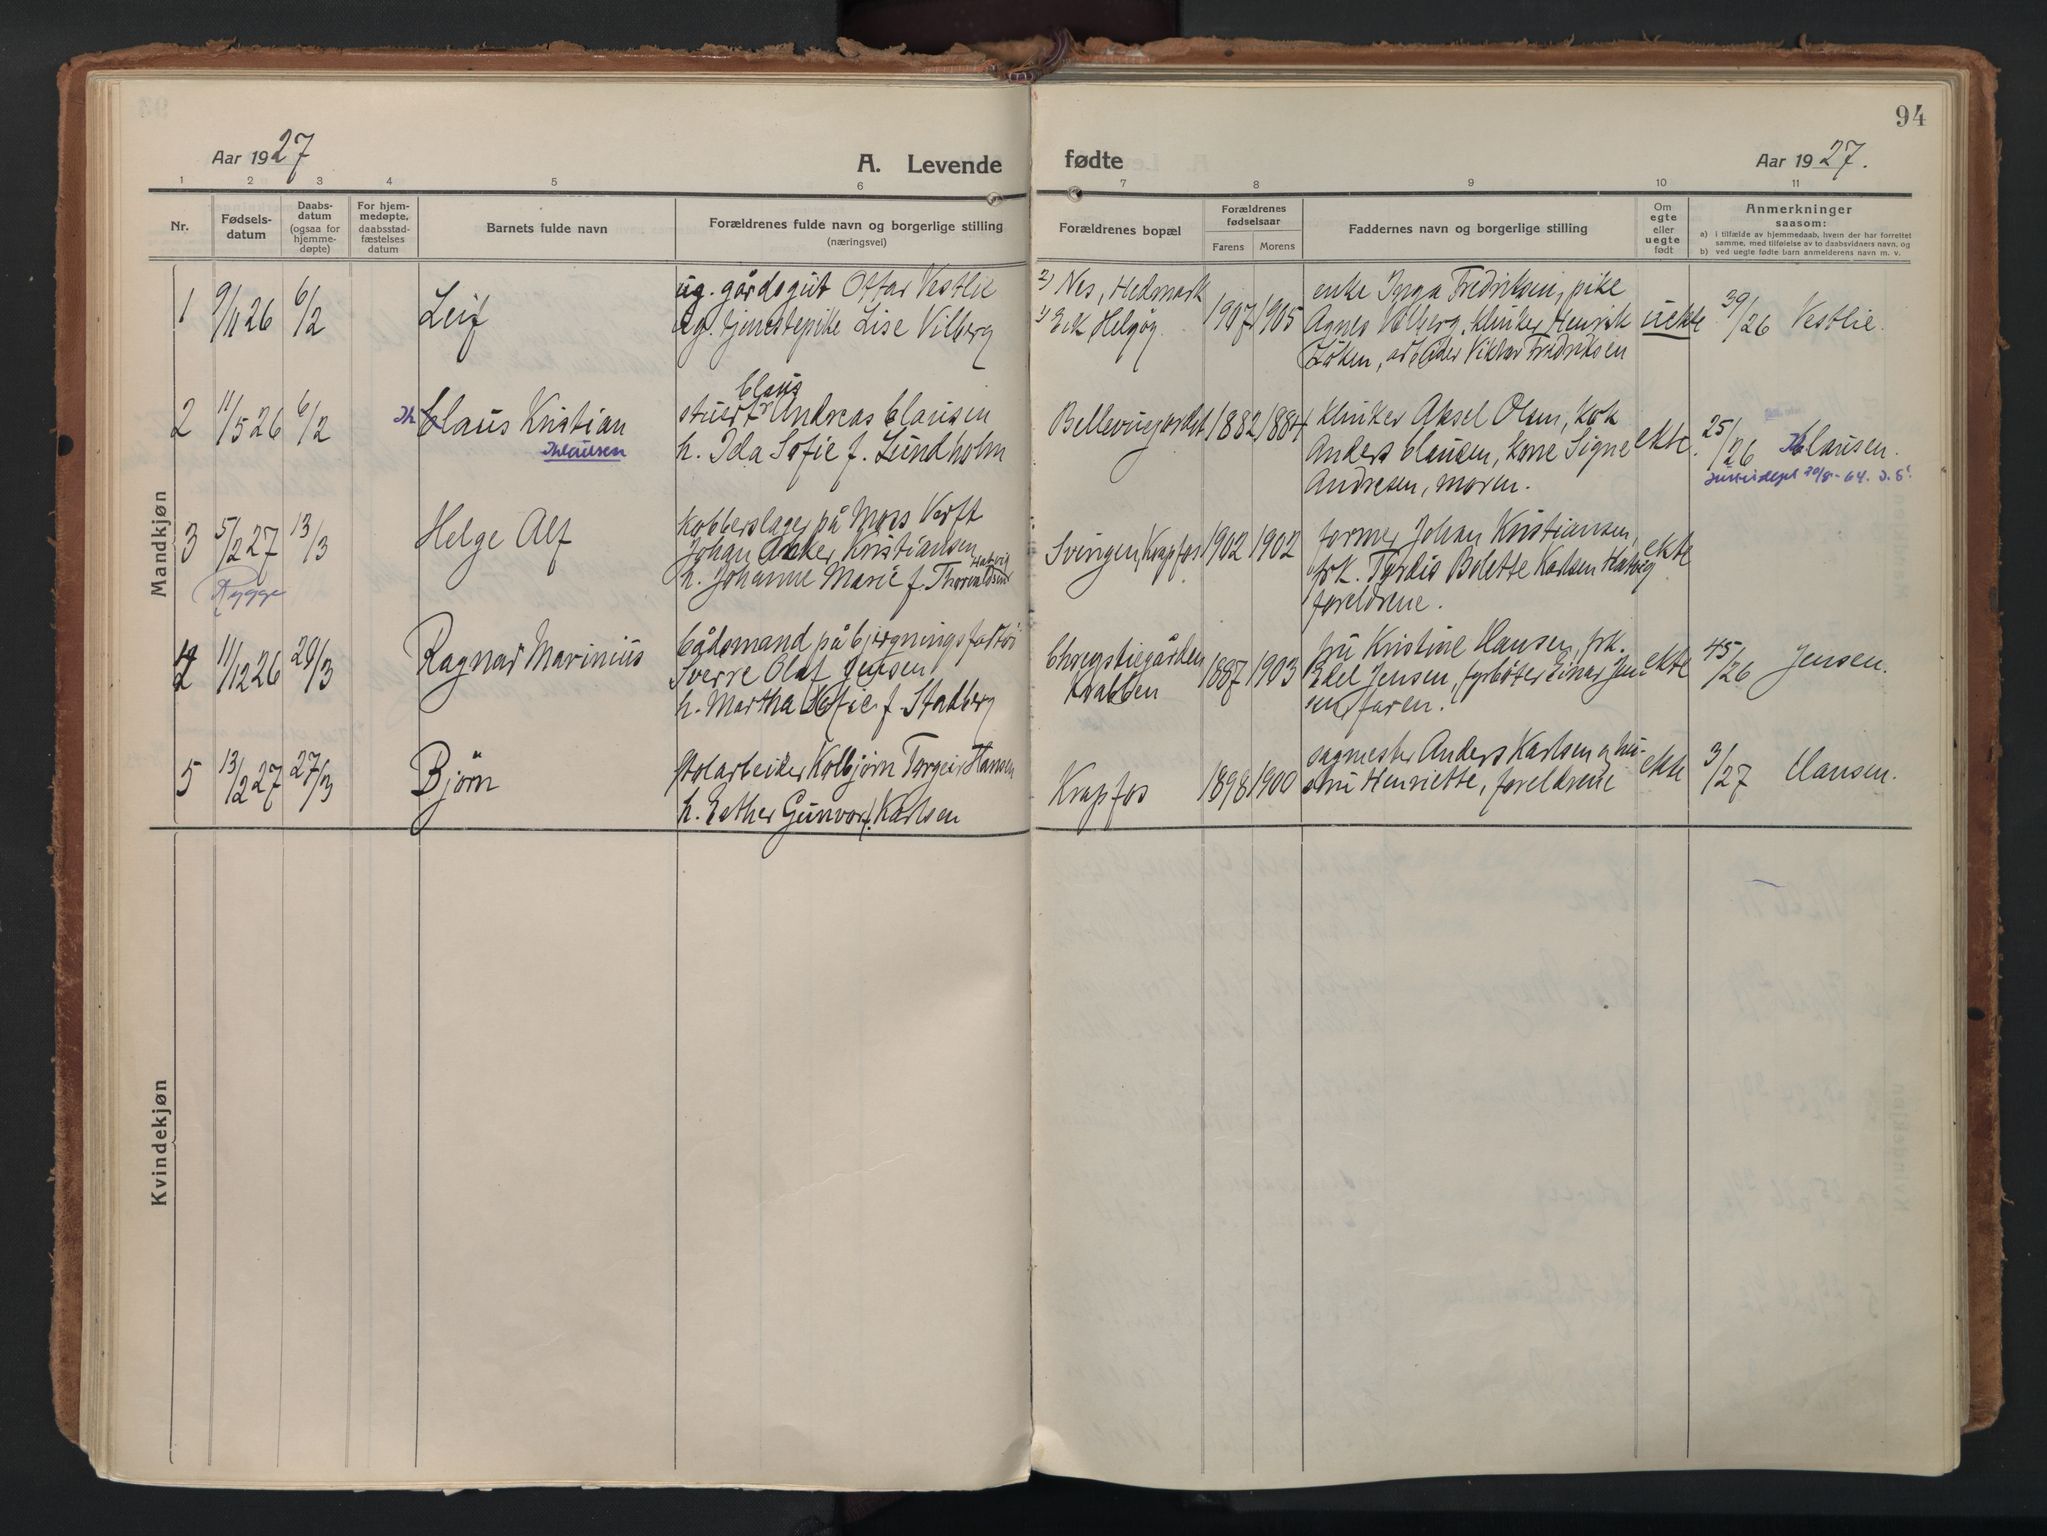 94
Aar 1927
A. Levende
fødte
Aar 1927.
1 2 3 4 5 6 7 8 9 10 11
Nr.
Fødsels-
datum
Daabs-
datum
(ogsaa for
hjemme-
døpte)
For hjem-
medøpte,
daabsstad-
fæstelses
datum
Barnets fulde navn
Forældrenes fulde navn og borgerlige stilling
(næringsvei)
Forældrenes bopæl
Forældrenes
fødselsaar
Farens Morens
Faddernes navn og borgerlige stilling
Om
egte
eller
uegte
født
Anmerkninger
saasom:
a) i tilfælde av hjemmedaab, hvem der har forrettet
samme, med tilføielse av to daabsvidners navn, og
b) ved uegte fødte barn anmelderens navn m. v.
Mandkjøn
1 9/11 26 6/2
Leif
ug. gårdsgut Ottar Vestlie
ug. tjenestepike Lise Vilberg
2) Nes, Hedmark
1) Helgøy
1907 1905
enke Fredriksen, pike
Agnes, klinker Henrik
Løken, Viktor Fredriksen
uekte
39/26 Vestlie.
2 11/5 26 6/2
Claus Kristian
Klausen
Claus
stuert Andreas Clausen
h. Ida Sofie f. Lundholm
1882 1884
klinker Aksel Olsen, kok
Anders Clausen, kone Signe
Andresen, moren.
ekte.
25/26 Klausen.
3 5/2 27 13/3
Rygge
Helge Alf
kobberslager på Moss Verft
Johan Anker Kristiansen
Hatvig
h. Johanne Marie f. Thorvaldsen
Svingen, Krapfos
1902 1902
former Johan Kristiansen,
frk. Bolette Karlsen Hatvig
foreldrene.
ekte
4 11/12 26 20/3
Ragnar Marinius
bådsmand på bjergningsfartøi
Sverre Olaf Jensen
h. Martha Sofie f. Stadberg
Chrystiegården
Krabben
1887 1903
fru Kristine Hansen, frk.
Edel Jensen, fyrbøter Einar Jen
sen, faren.
ekte
45/26 Jensen.
5 13/2 27 27/3
Bjørn
stolarbeider Kolbjørn Torgeir Hansen
h. Esther Gunvor f. Karlsen
Krapfos
1898 1900
sagmester Anders Karlsen og hu-
stru Henriette, foreldrene
ekte
3/27 Hansen.
Kvindekjøn